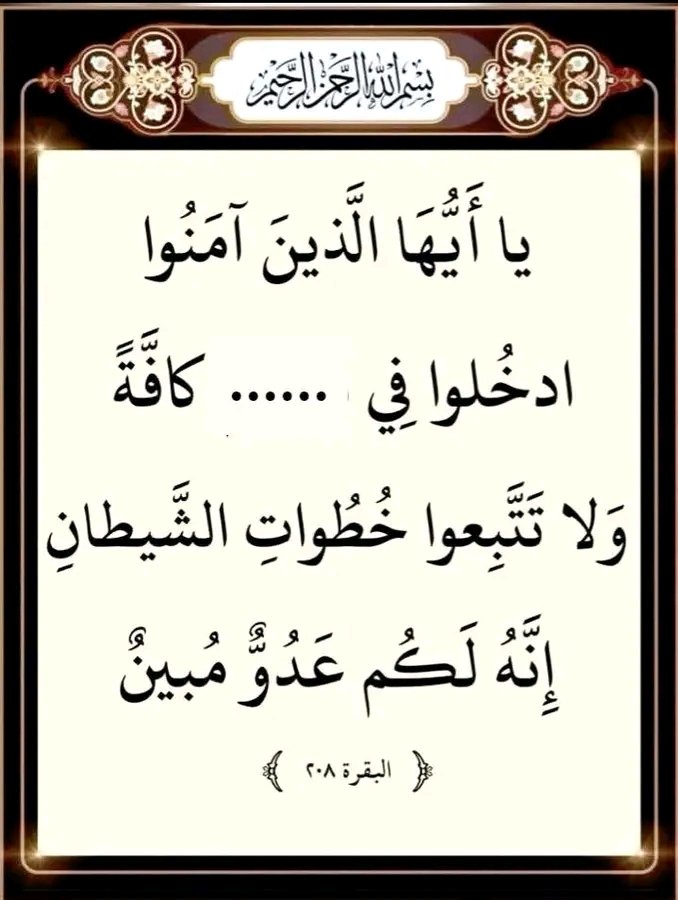 بسم الله الرحمن الرحيم
يا أَيُّهَا الَّذينَ آمَنُوا
ادخُلوا فِي ...... كافَّةً
وَلا تَتَّبِعوا خُطُواتِ الشَّيطانِ
إِنَّهُ لَكُم عَدُوٌّ مُبينٌ
﴿ البقرة ٢٠٨ ﴾